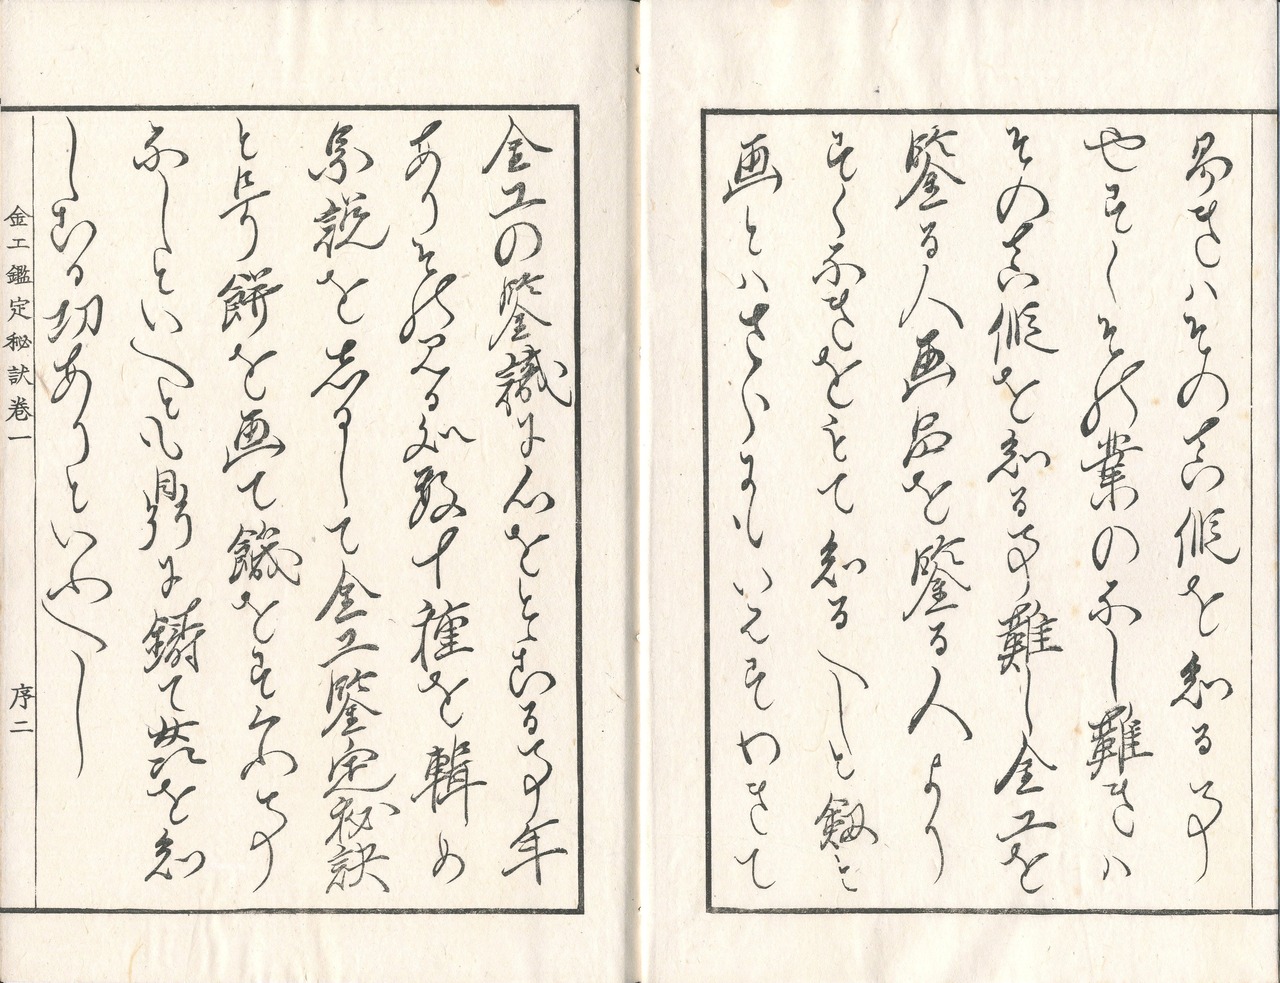 易きハその真偽を知る事
やすしその業のなし難きハ
その真偽を知る事難し金工を
鑒る人画図を鑒る人より
すくなきをもて知るへしと劔と
画とハさらにもいえすわきて
金工の鑒識に心をとむる事年
ありその見る処数十種を輯め
系説をしるして金工鑒定秘訣
と号り餅を画て饑を
なしといへとも鼎に鑄て
したる切ありといふへし
金工鑑定秘訣巻一
序二